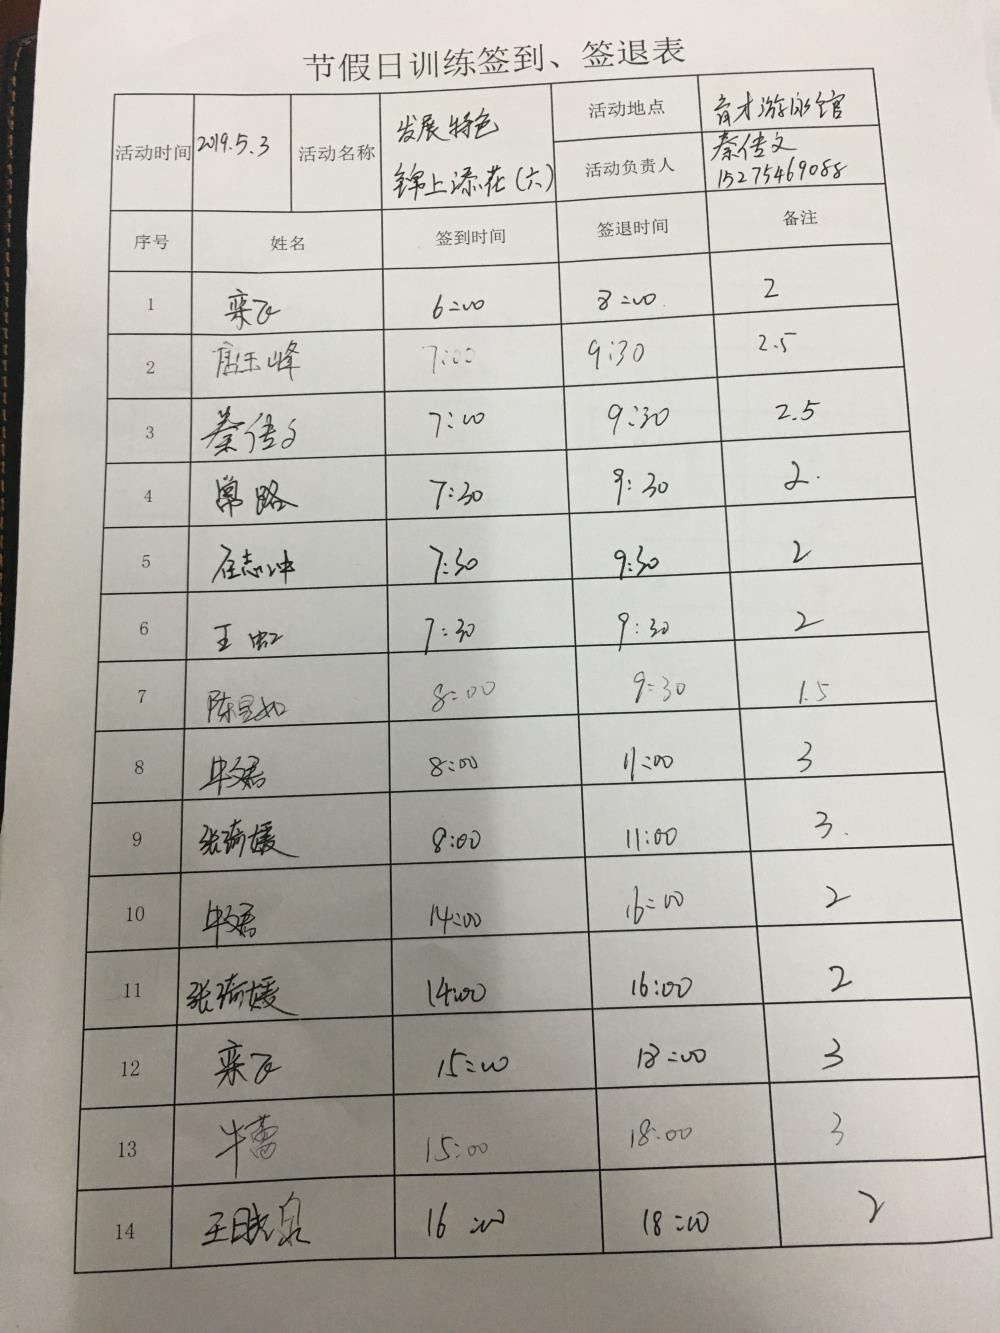 节假日训练签到、签退表
活动时间 2019.5.3 活动名称 发展特色 锦上添花(六) 活动地点 育才游泳馆
活动负责人 秦传文 15275469088
序号 姓名 签到时间 签退时间 备注
1 栾飞 6:00 8:00 2
2 唐玉峰 7:00 9:30 2.5
3 秦传文 7:00 9:30 2.5
4 常路 7:30 9:30 2.
5 任志冲 7:30 9:30 2
6 王虹 7:30 9:30 2
7 陈昱如 8:00 9:30 1.5
8 8:00 11:00 3
9 张琦媛 8:00 11:00 3.
10 14:00 16:00 2
11 张琦媛 14:00 16:00 2
12 栾飞 15:00 18:00 3
13 牛蕾 15:00 18:00 3
14 王晓泉 16:00 18:00 2